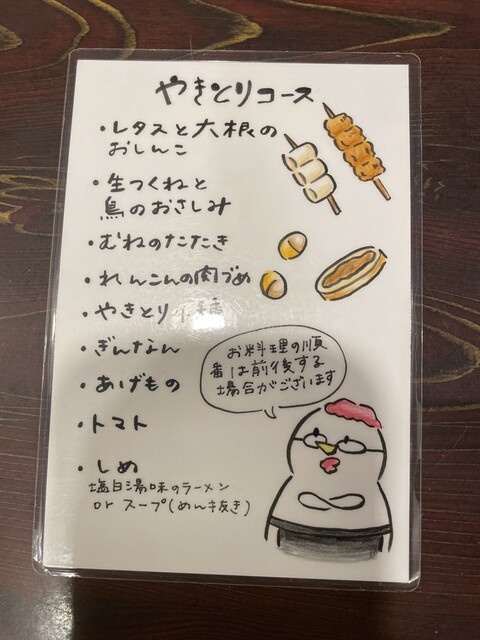 やきとりコース
・レタスと大根の
おしんこ
・生つくねと
鳥のおさしみ
・むねのたたき
・れんこんの肉づめ
・やきとり
・ぎんなん
・あげもの
・トマト
・しめ
塩白湯味のラーメン
or スープ(めん抜き)
お料理の順
番は前後する
場合がございます